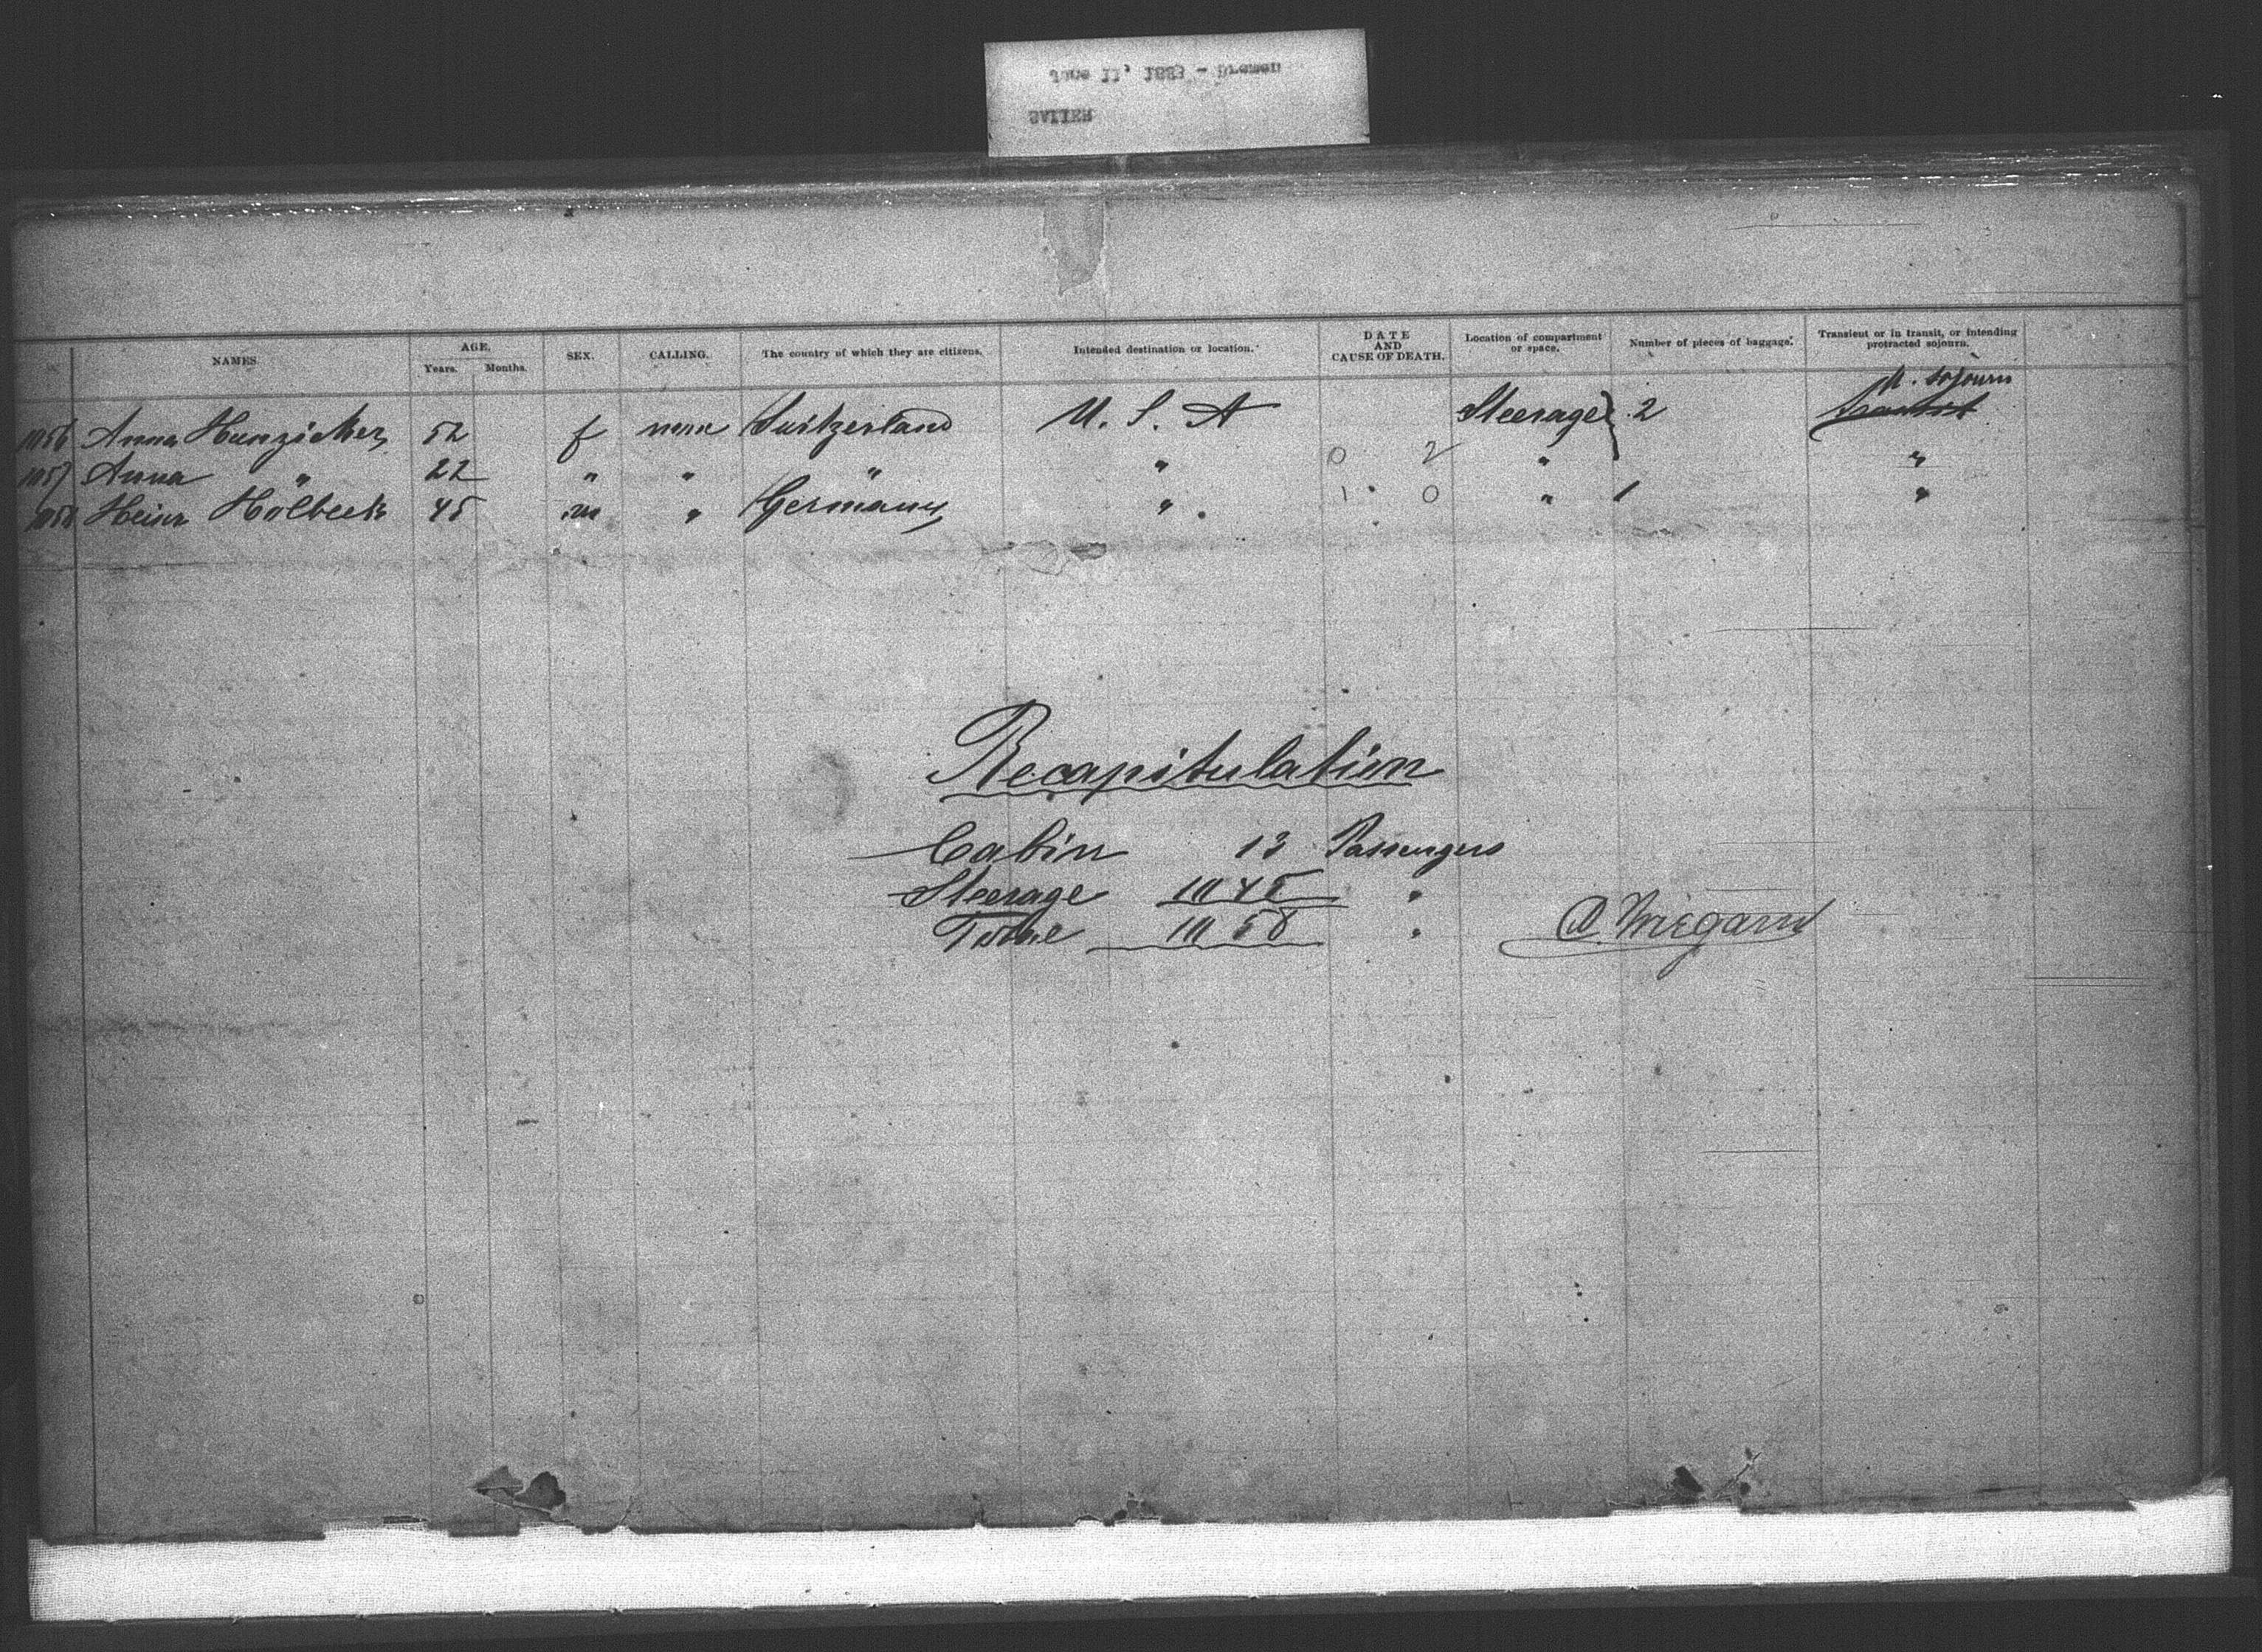 June 11, 1883 - Bremen
NAMES.
AGE.
Years. Months.
SEX.
CALLING.
The country of which they are citizens.
Intended destination or location.
DATE
AND
CAUSE OF DEATH.
Location of compartment
or space.
Number of pieces of baggage.
Transient or in transit, or intending
protracted sojourn.
sojourn
1056 Anna Hunzicker 52 f none Switzerland U. S. A Steerage 2 transit
1057 Anna " 22 " " " " 0 2 " "
1058 Heinr Holbeck 45 m " Germany " 1 0 " 1 "
Recapitulation
Cabin 13 Passengers
Steerage 1045 "
Total 1058 "
Wiegand